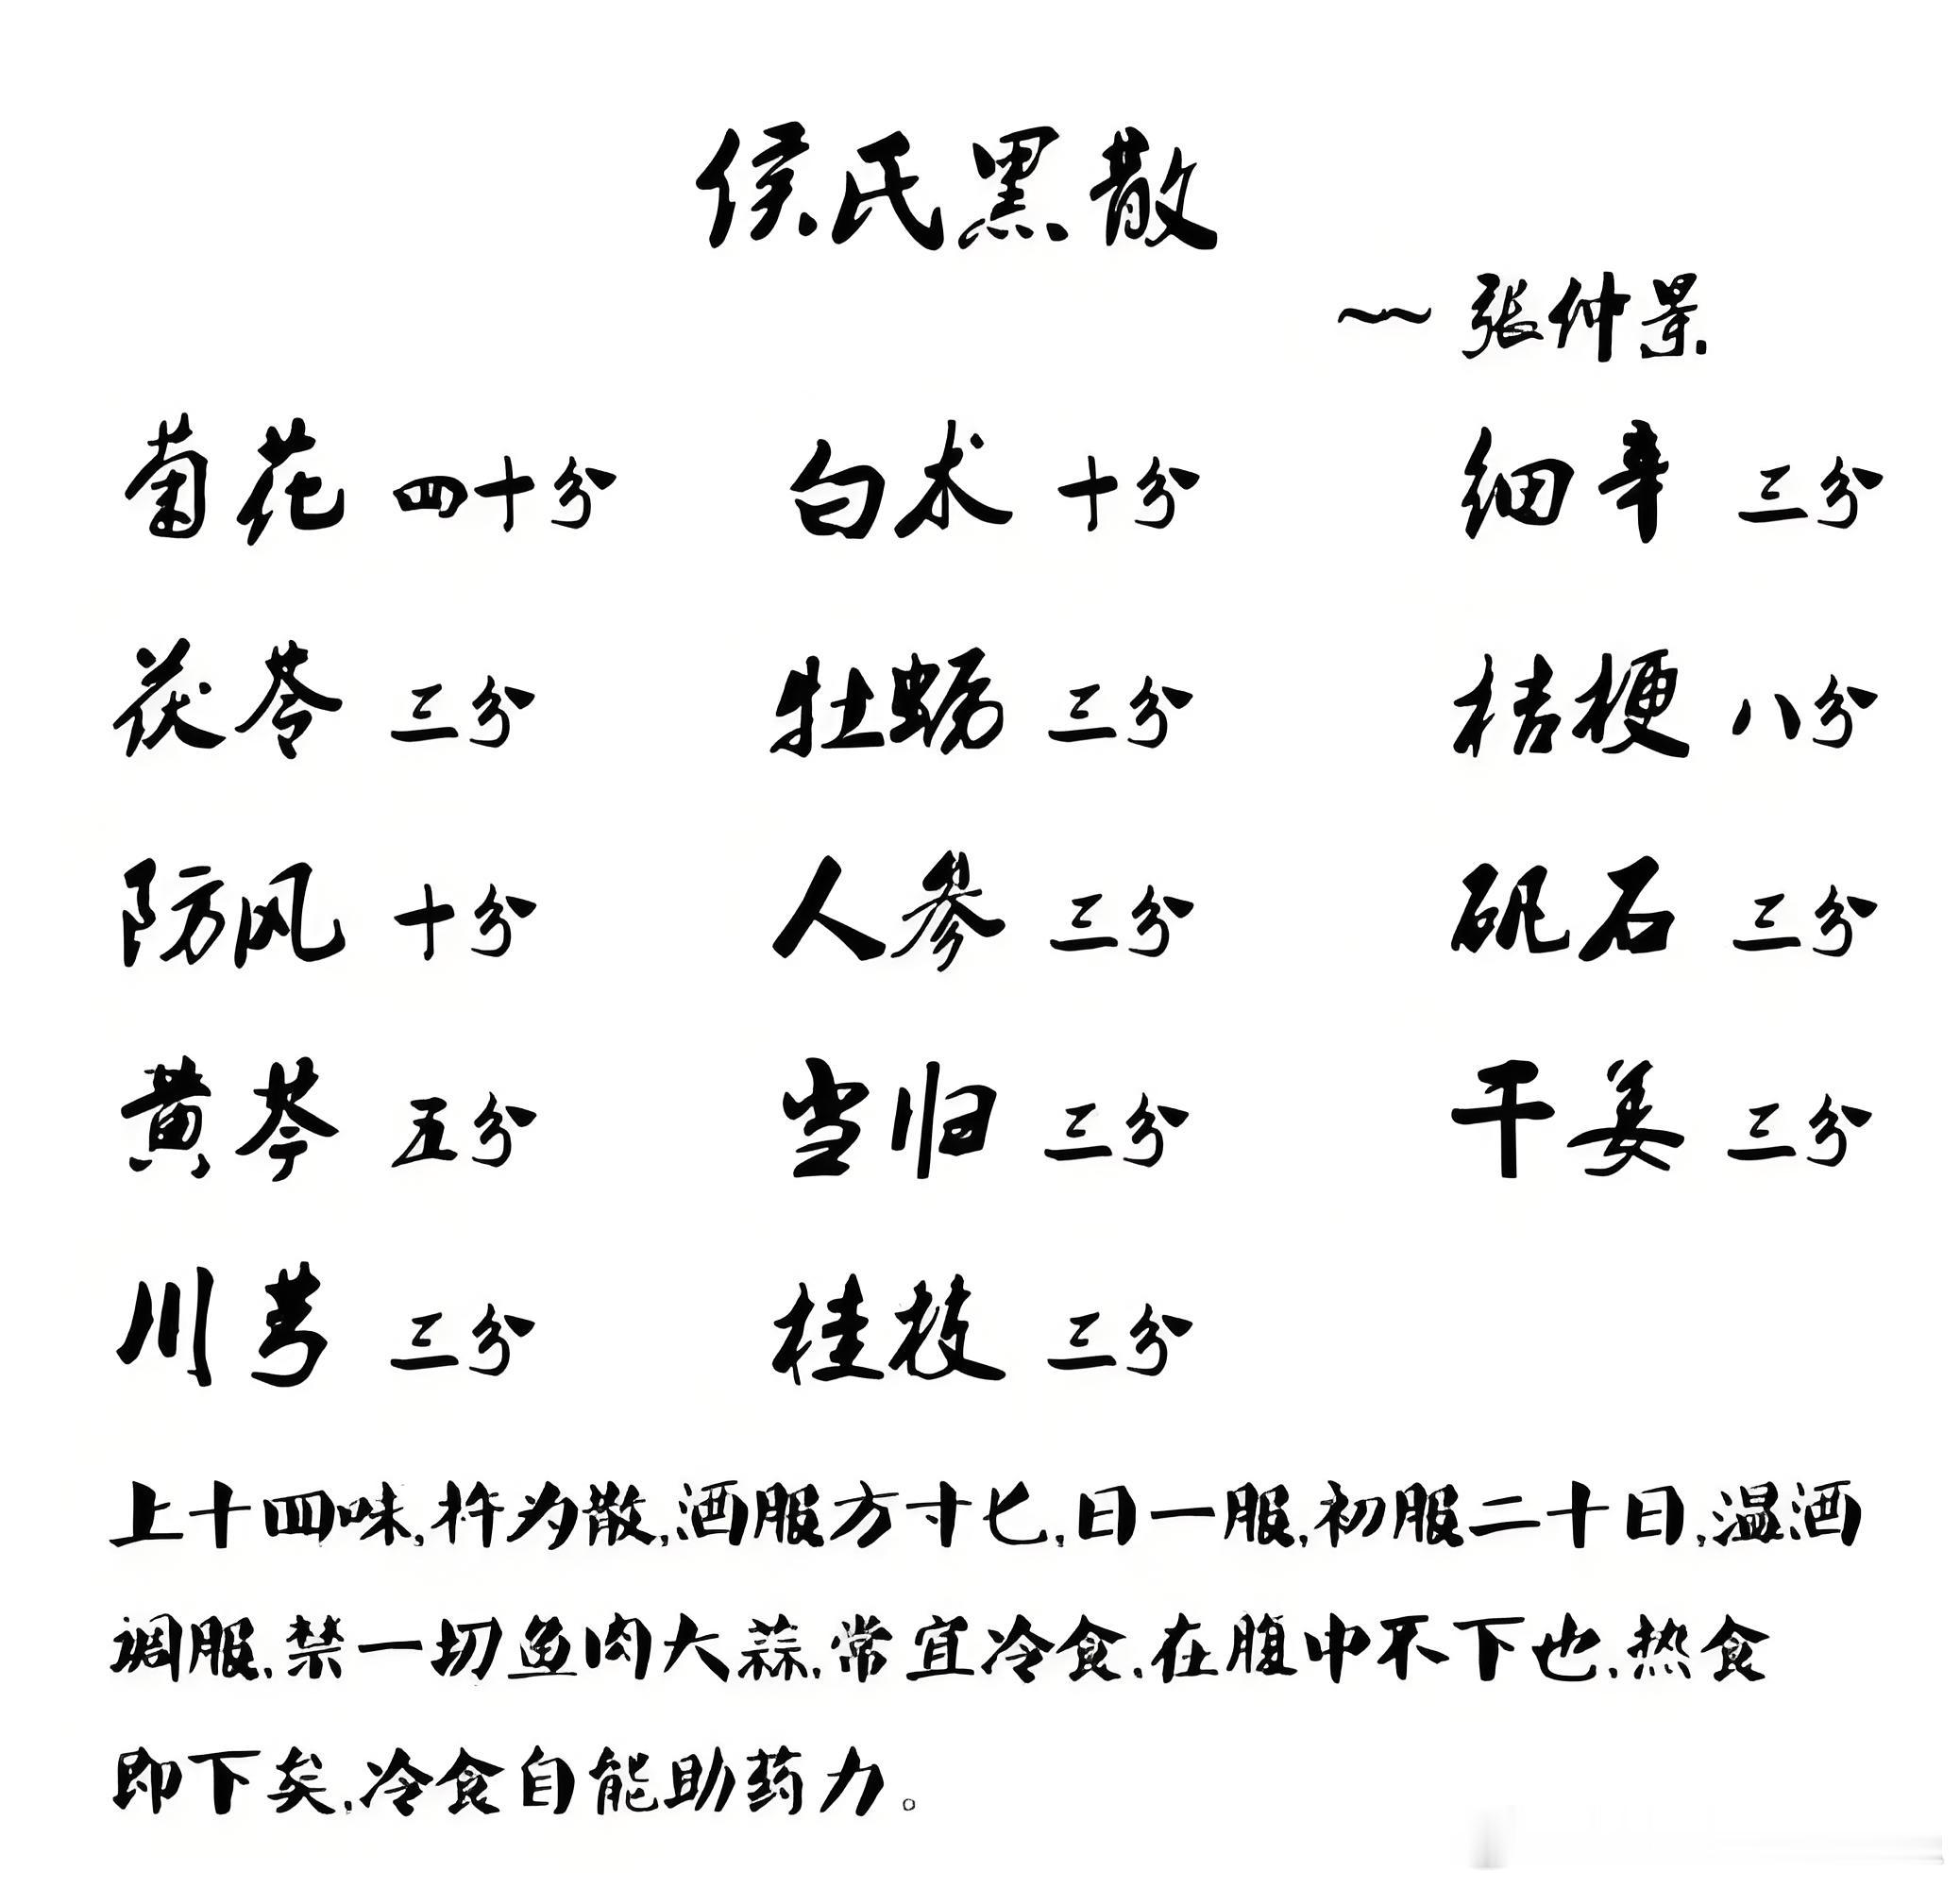 侯氏黑散
~张仲景
菊花 四十分 白术 十分 细辛 三分
茯苓 三分 牡蛎 三分 桔梗 八分
防风 十分 人参 三分 矾石 三分
黄芩 五分 当归 三分 干姜 三分
川芎 三分 桂枝 三分
上十四味,杵为散,酒服方寸匕,日一服,初服二十日,温酒
调服,禁一切鱼肉大蒜,常宜冷食,在腹中不下也,热食
即下矣,冷食自能助药力。